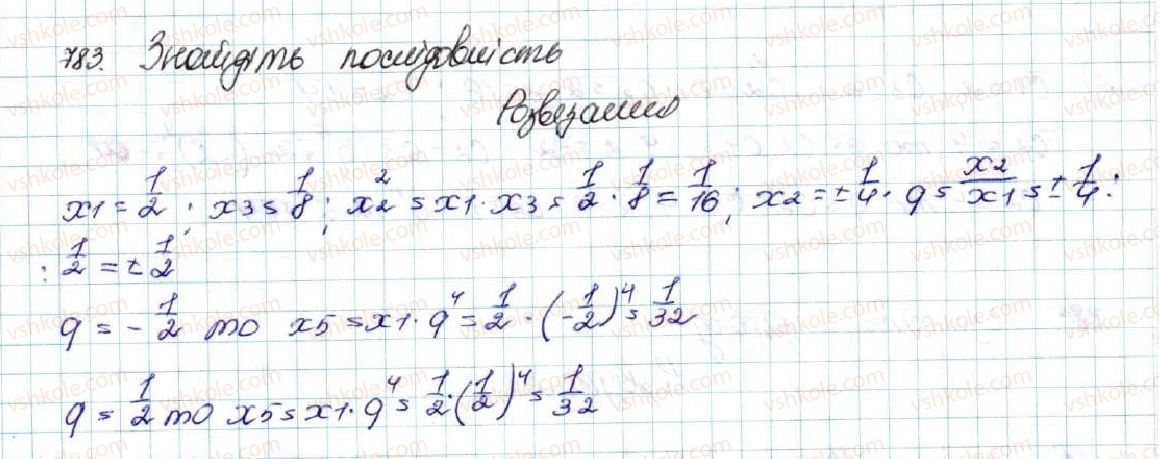 783. Знайдіть послідовність
Розвезання
x1 = 1/2; x3 = 1/8; x2² = x1 · x3 = 1/2 · 1/8 = 1/16; x2 = ± 1/4. q = x2/x1 = ± 1/4 :
: 1/2 = ± 1/2
q = - 1/2 то x5 = x1 · q⁴ = 1/2 · (- 1/2)⁴ = 1/32
q = 1/2 то x5 = x1 · q⁴ = 1/2 · (1/2)⁴ = 1/32